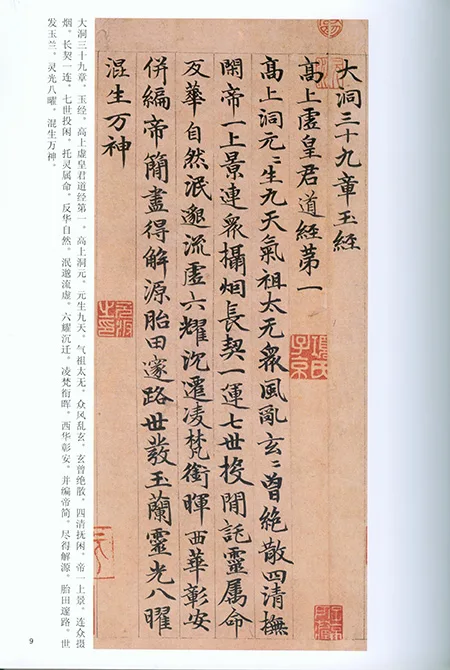 大洞三十九章玉經
髙上虛皇君道經第一
髙上洞元〻生九天氣祖太无衆風亂玄〻曾絶散四清撫
閑帝一上景連衆攝烟長契一運七世投閒託靈属命
反華自然泯邈流虛六耀沉遷凌梵銜暉西華彰安
併編帝簡盡得解源胎田邃路世發玉蘭靈光八曜
混生万神
項氏子京
大洞三十九章。玉经。高上虚皇君道经第一。高上洞元。元生九天。气祖太无。众风乱玄。玄曾绝散。四清抚闲。帝一上景。连众摄
烟。长契一连。七世投闲。托灵属命。反华自然。泯邈流虚。六耀沉迁。凌梵衔晖。西华彰安。并编帝简。尽得解源。胎田邃路。世
发玉兰。灵光八曜。混生万神。
9